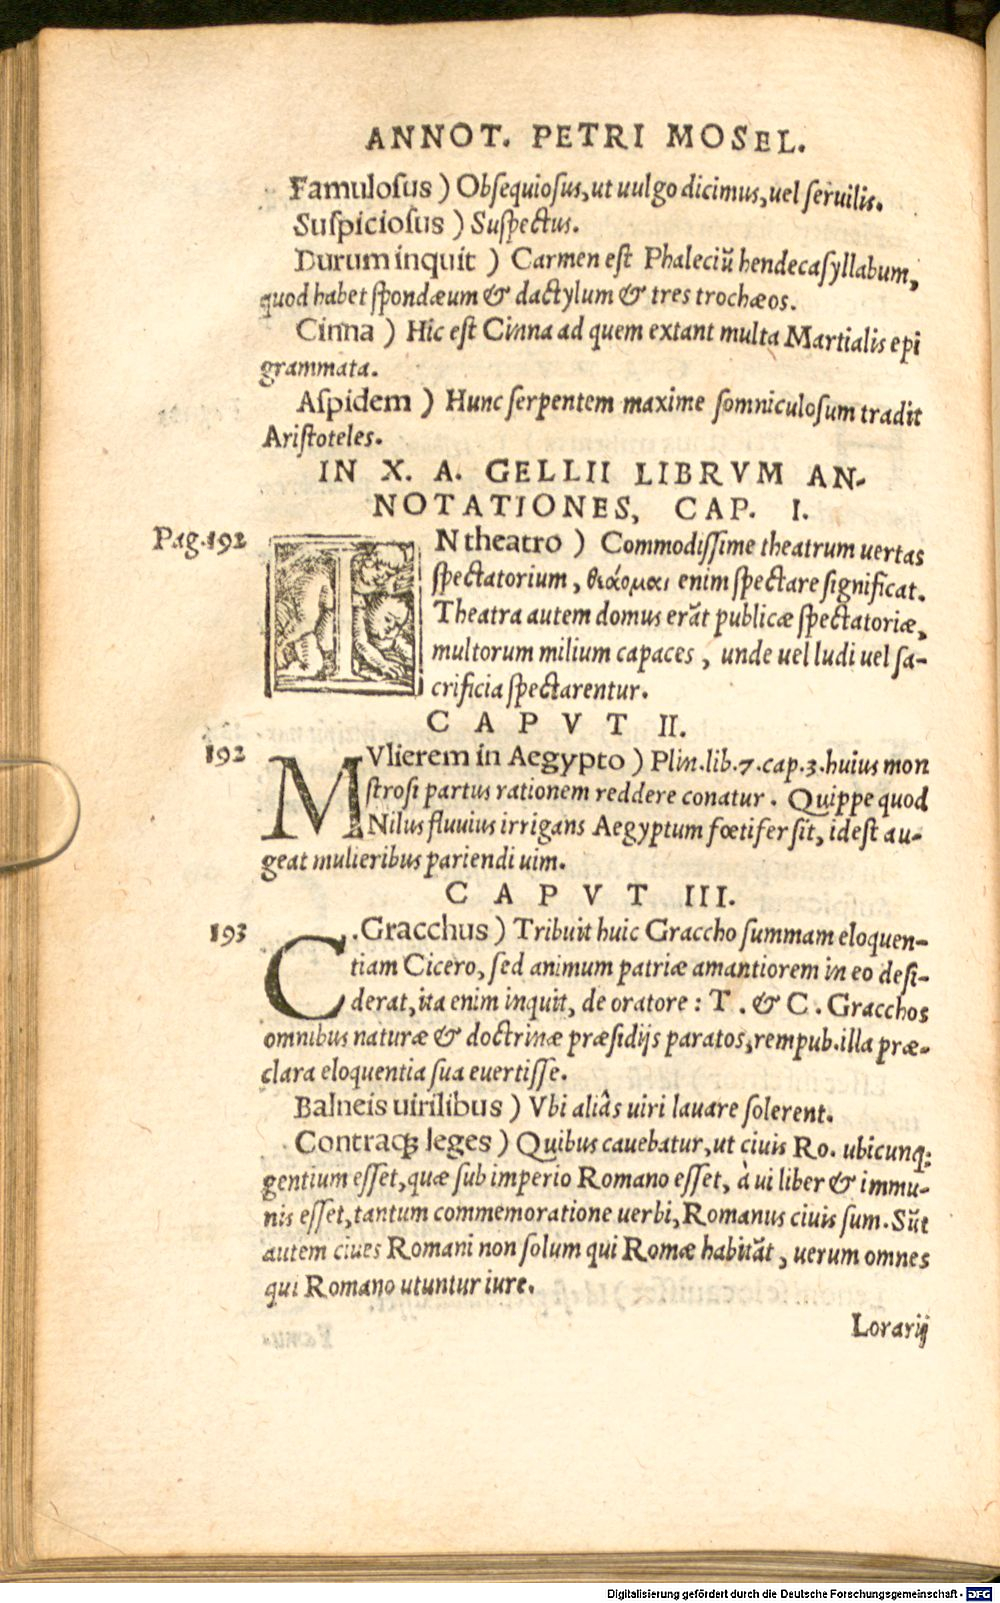 ANNOT. PETRI MOSEL.
Famulosus ) Obsequiosus, ut uulgo dicimus, uel seruilis.
Suspiciosus ) Suspectus.
Durum inquit ) Carmen est Phaleciũ hendecasyllabum,
quod habet spondæum & dactylum & tres trochæos.
Cinna ) Hic est Cinna ad quem extant multa Martialis epi
grammata.
Aspidem ) Hunc serpentem maxime somniculosum tradit
Aristoteles.
IN X. A. GELLII LIBRVM AN-
NOTATIONES, CAP. I.
Pag. 192
IN theatro ) Commodissime theatrum uertas
spectatorium, θιάομαι enim spectare significat.
Theatra autem domus erãt publicæ spectatoriæ,
multorum milium capaces, unde uel ludi uel sa-
crificia spectarentur.
CAPVT II.
192
MVlierem in Aegypto ) Plin. lib. 7. cap. 3. huius mon
strosi partus rationem reddere conatur. Quippe quod
Nilus fluuius irrigans Aegyptum fœtifer sit, id est au-
geat mulieribus pariendi uim.
CAPVT III.
193
C. Gracchus ) Tribuit huic Graccho summam eloquen-
tiam Cicero, sed animum patriæ amantiorem in eo desi-
derat, ita enim inquit, de oratore: T. & C. Gracchos
omnibus naturæ & doctrinæ præsidijs paratos, rempub. illa præ-
clara eloquentia sua euertisse.
Balneis uirilibus ) Vbi aliâs uiri lauare solerent.
Contraq; leges ) Quibus cauebatur, ut ciuis Ro. ubicunq;
gentium esset, quæ sub imperio Romano esset, à ui liber & immu-
nis esset, tantum commemoratione uerbi, Romanus ciuis sum. Sũt
autem ciues Romani non solum qui Romæ habitãt, uerum omnes
qui Romano utuntur iure.
Lorarij
Digitalisierung gefördert durch die Deutsche Forschungsgemeinschaft - DFG